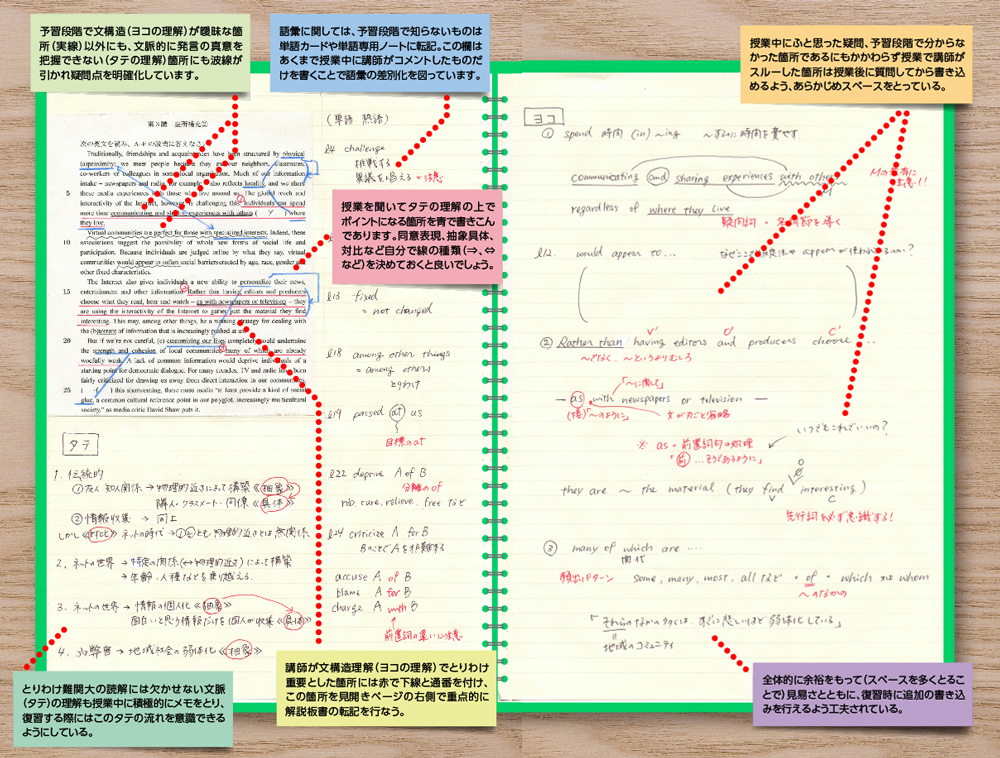 予習段階で文構造(ヨコの理解)が曖昧な箇
所(実線)以外にも、文脈的に発言の真意を
把握できない(タテの理解)箇所にも波線が
引かれ疑問点を明確化しています。
語彙に関しては、予習段階で知らないものは
単語カードや単語専用ノートに転記。この欄は
あくまで授業中に講師がコメントしたものだ
けを書くことで語彙の差別化を図っています。
授業中にふと思った疑問、予習段階で分からな
かった箇所であるにもかかわらず授業で講師が
スルーした箇所は授業後に質問してから書き込
めるよう、あらかじめスペースをとっている。
第3講 空所補充②
次の英文を読み、A-Fの設問に答えなさい。
Traditionally, friendships and acquaintances have been structured by physical
(a)proximity: we meet people because they are our neighbors, classmates,
co-workers or colleagues in some local organization. Much of our information
intake – newspapers and radio, for example – also reflects locality, and we share
5 these media experiences with those who live around us. The global reach and
interactivity of the Internet, however, is challenging this. Individuals can spend
more time communicating and sharing experiences with others ( ア ) where
they live.
Virtual communities are perfect for those with specialized interests. Indeed, these
10 associations suggest the possibility of whole new forms of social life and
participation. Because individuals are judged online by what they say, virtual
communities would appear to soften social barriers erected by age, race, gender and
other fixed characteristics.
The Internet also gives individuals a new ability to personalize their news,
15 entertainment and other information. Rather than having editors and producers
choose what they read, hear and watch – as with newspapers or television – they
are using the interactivity of the Internet to gather just the material they find
interesting. This may, among other things, be a winning strategy for dealing with
the (b)torrent of information that is increasingly pushed at us.
20 But if we're not careful, (c) customizing our lives completely could undermine
the strength and cohesion of local communities, many of which are already
woefully weak. A lack of common information would deprive individuals of a
starting point for democratic dialogue. For many decades, TV and radio have been
fairly criticized for drawing us away from direct interaction in our communities.
25 this shortcoming, these mass media "at least provide a kind of social
glue, a common cultural reference point in our polyglot, increasingly multicultural
society," as media critic David Shaw puts it.
(単語 熟語)
l4 challenge
挑戦する
異議を唱える ← 注意
授業を聞いてタテの理解の上で
ポイントになる箇所を青で書きこん
であります。同意表現、抽象具体、
対比など自分で線の種類(⇒、⇔
など)を決めておくと良いでしょう。
l13 fixed
= not changed
l18 among other things
= among others
とりわけ
l19 passed at us
目標のat
l22 deprive A of B
分離のof
rob, cure, relieve, free など
l24 criticize A for B
BのことでAを非難する
accuse A of B
blame A for B
charge A with B
前置詞の違いに注意
タテ
1. 伝統的
①友人・知人関係 → 物理的近さによって構築《抽象》
隣人・クラスメート・同僚《具体》
②情報収集 → 同上
しかし ネットの時代 → ①②とも物理的近さとは無関係
2. ネットの世界 → 特定の関係(↔物理的近さ)によって構築
→ 年齢・人種などを乗り越える
3. ネットの世界 → 情報の個人化《抽象》
面白いと思う情報だけを個人が収集《具体》
4. 弊害 → 地域社会の弱体化《抽象》
ヨコ
① spend 時間 (in) ~ing ~するのに時間を費やす
communicating and sharing experiences with others
Mの共有に
注意!!
regardless of where they live
疑問詞・名詞節を導く
l12. would appear to...
② Rather than having editors and producers choose...
V' O' C'
~でなく、~というよりむしろ
「~に関して」
— as with newspapers or television —
(接)「~のように」 文が丸ごと省略
いつでもこれでいいの?
※ as + 前置詞句の処理
「前 ...そうであるように」
they are ~ the material (they find interesting)
O
C
先行詞を必ず意識する!
③ many of which are ....
関代
頻出パターン some, many, most, all など + of + which または whom
~のなかの
「それらのなかの多くは、すでに悲しいほど弱体化している」
地域のコミュニティ
とりわけ難関大の読解には欠かせない文脈
(タテ)の理解も授業中に積極的にメモをとり、
復習する際にはこのタテの流れを意識できる
ようにしている。
講師が文構造理解(ヨコの理解)でとりわけ
重要とした箇所には赤で下線と通番を付け、
この箇所を見開きページの右側で重点的に
解説板書の転記を行なう。
全体的に余裕をもって(スペースを多くとるこ
とで)見易さとともに、復習時に追加の書き込
みを行えるよう工夫されている。